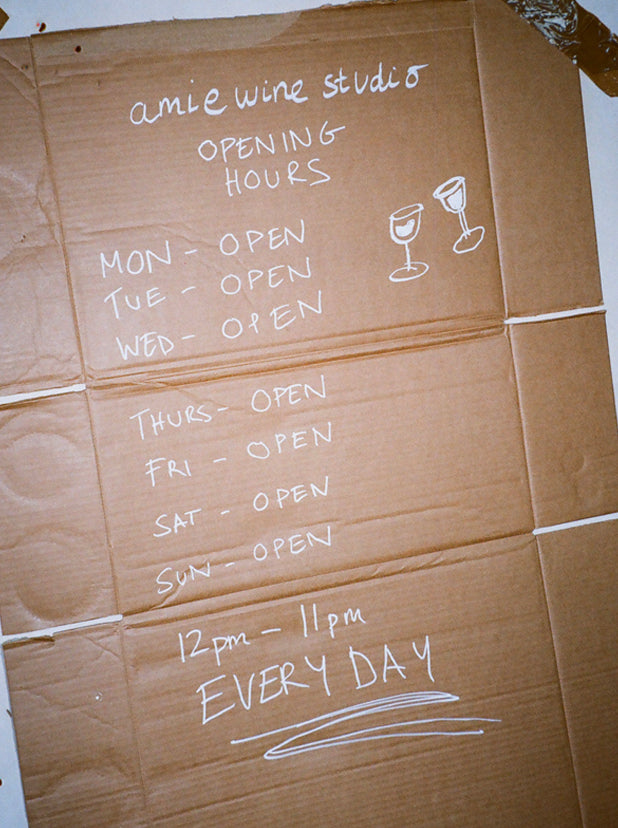 amie wine studio
OPENING
HOURS
MON - OPEN
TUE - OPEN
WED - OPEN
THURS - OPEN
FRI - OPEN
SAT - OPEN
SUN - OPEN
12pm - 11pm
EVERY DAY